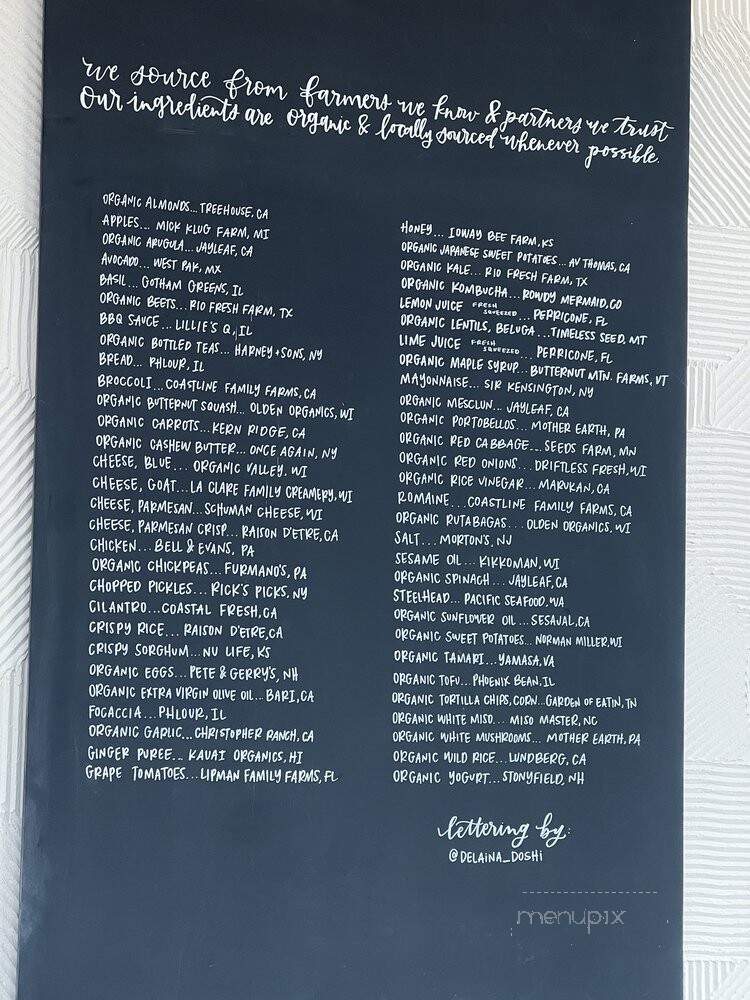 we source from farmers we know & partners we trust
Our ingredients are organic & locally sourced whenever possible.
ORGANIC ALMONDS... TREEHOUSE, CA
APPLES... MICK KLUG FARM, MI
ORGANIC ARUGULA... JAYLEAF, CA
AVOCADO... WEST PAK, MX
BASIL... GOTHAM GREENS, IL
ORGANIC BEETS... RIO FRESH FARM, TX
BBQ SAUCE... LILLIE'S Q, IL
ORGANIC BOTTLED TEAS... HARNEY + SONS, NY
BREAD... PHLOUR, IL
BROCCOLI... COASTLINE FAMILY FARMS, CA
ORGANIC BUTTERNUT SQUASH... OLDEN ORGANICS, WI
ORGANIC CARROTS... KERN RIDGE, CA
ORGANIC CASHEW BUTTER... ONCE AGAIN, NY
CHEESE, BLUE... ORGANIC VALLEY, WI
CHEESE, GOAT... LA CLARE FAMILY CREAMERY, WI
CHEESE, PARMESAN... SCHUMAN CHEESE, WI
CHEESE, PARMESAN CRISP... RAISON D'ETRE, CA
CHICKEN... BELL & EVANS, PA
ORGANIC CHICKPEAS... FURMANO'S, PA
CHOPPED PICKLES... RICK'S PICKS, NY
CILANTRO... COASTAL FRESH, CA
CRISPY RICE... RAISON D'ETRE, CA
CRISPY SORGHUM... NU LIFE, KS
ORGANIC EGGS... PETE & GERRY'S, NH
ORGANIC EXTRA VIRGIN OLIVE OIL... BARI, CA
FOCACCIA... PHLOUR, IL
ORGANIC GARLIC... CHRISTOPHER RANCH, CA
GINGER PUREE... KAUAI ORGANICS, HI
GRAPE TOMATOES... LIPMAN FAMILY FARMS, FL
HONEY... IOWAY BEE FARM, KS
ORGANIC JAPANESE SWEET POTATOES... AV THOMAS, CA
ORGANIC KALE... RIO FRESH FARM, TX
ORGANIC KOMBUCHA... ROWDY MERMAID, CO
LEMON JUICE FRESH SQUEEZED... PERRICONE, FL
ORGANIC LENTILS, BELUGA... TIMELESS SEED, MT
LIME JUICE FRESH SQUEEZED... PERRICONE, FL
ORGANIC MAPLE SYRUP... BUTTERNUT MTN. FARMS, VT
MAYONNAISE... SIR KENSINGTON, NY
ORGANIC MESCLUN... JAYLEAF, CA
ORGANIC PORTOBELLOS... MOTHER EARTH, PA
ORGANIC RED CABBAGE... SEEDS FARM, MN
ORGANIC RED ONIONS... DRIFTLESS FRESH, WI
ORGANIC RICE VINEGAR... MARUKAN, CA
ROMAINE... COASTLINE FAMILY FARMS, CA
ORGANIC RUTABAGAS... OLDEN ORGANICS, WI
SALT... MORTON'S, NJ
SESAME OIL... KIKKOMAN, WI
ORGANIC SPINACH... JAYLEAF, CA
STEELHEAD... PACIFIC SEAFOOD, WA
ORGANIC SUNFLOWER OIL... SESAJAL, CA
ORGANIC SWEET POTATOES... NORMAN MILLER, WI
ORGANIC TAMARI... YAMASA, VA
ORGANIC TOFU... PHOENIX BEAN, IL
ORGANIC TORTILLA CHIPS, CORN... GARDEN OF EATIN, TN
ORGANIC WHITE MISO... MISO MASTER, NC
ORGANIC WHITE MUSHROOMS... MOTHER EARTH, PA
ORGANIC WILD RICE... LUNDBERG, CA
ORGANIC YOGURT... STONYFIELD, NH
lettering by:
@DELAINA_DOSHI
menupix